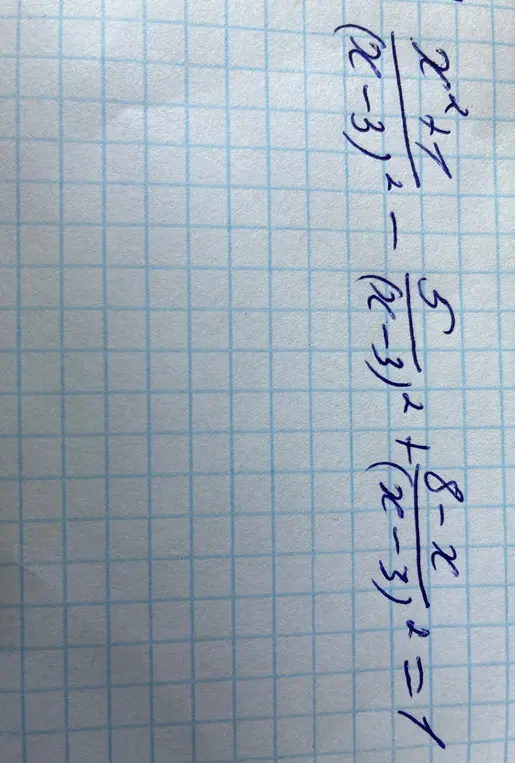 (x²+1)/(x-3)² - 5/(x-3)² + (8-x)/(x-3)² = 1